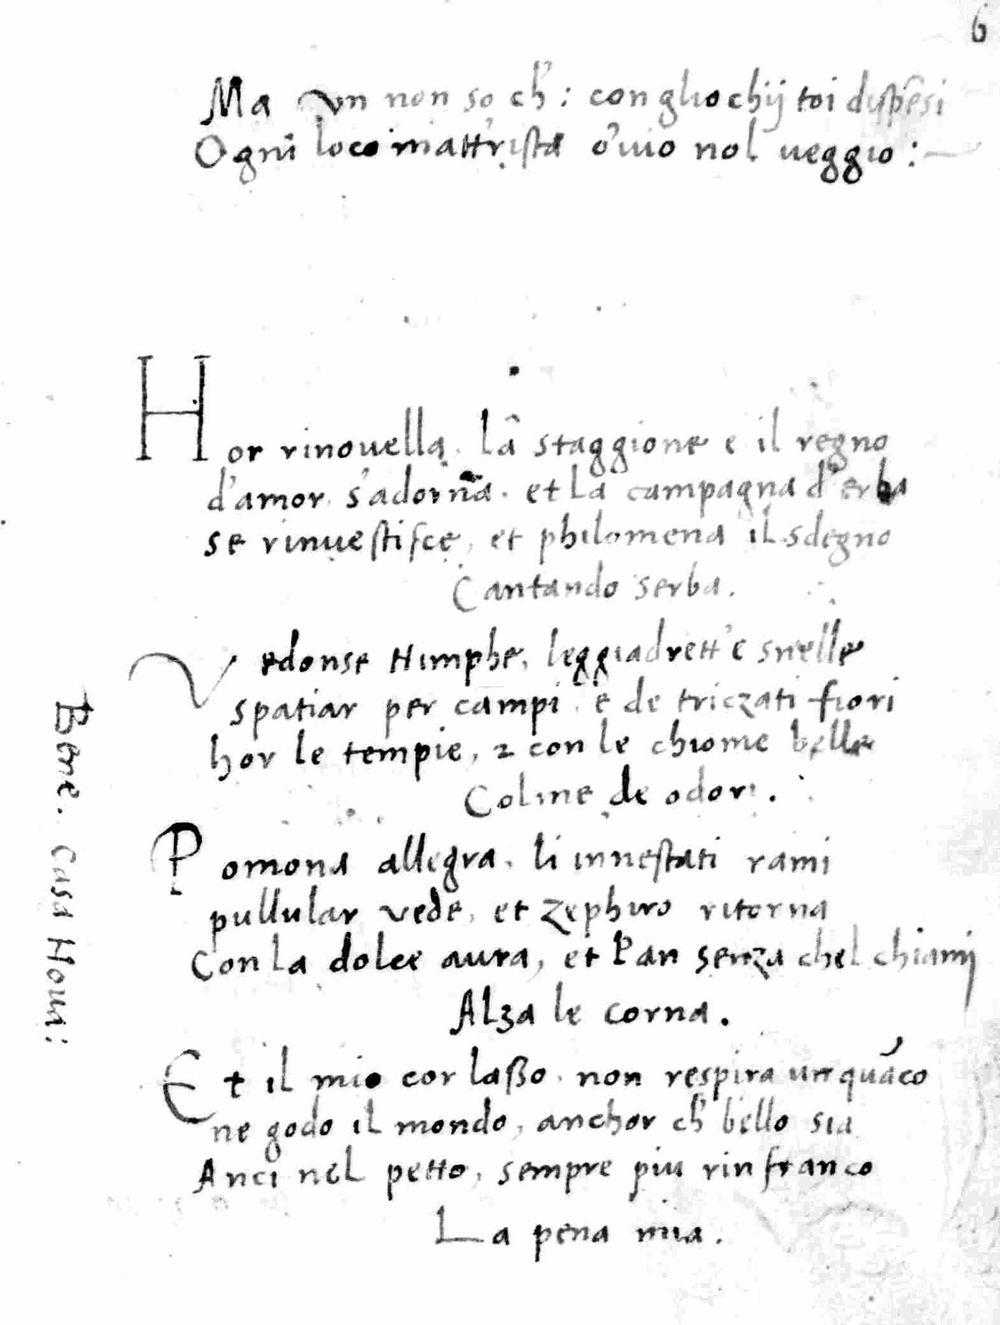 6
Ma un non so ch': con gliochij toi dispesi
Ogni loco mattrista o' uio nol ueggio:
Hor rinouella. la staggione e il regno
d'amor. s'adorna. et la campagna d'erba
se rinuestisce, et philomena il sdegno
Cantando serba.
Vedonse Nimphe, leggiadrett'e snelle
spatiar per campi. e de triczati fiori
hor le tempie, 2 con le chiome belle
Coline de odori.
Pomona allegra. li innestati rami
pullular vede, et Zephiro ritorna
Con la dolce aura, et Pan senza chel chiamj
Alza le corna.
Et il mio cor laßo. non respira unquāco
ne godo il mondo, anchor ch' bello sia
Anci nel petto, sempre piu rinfranco
La pena mia.
Bene. Casa Noua: